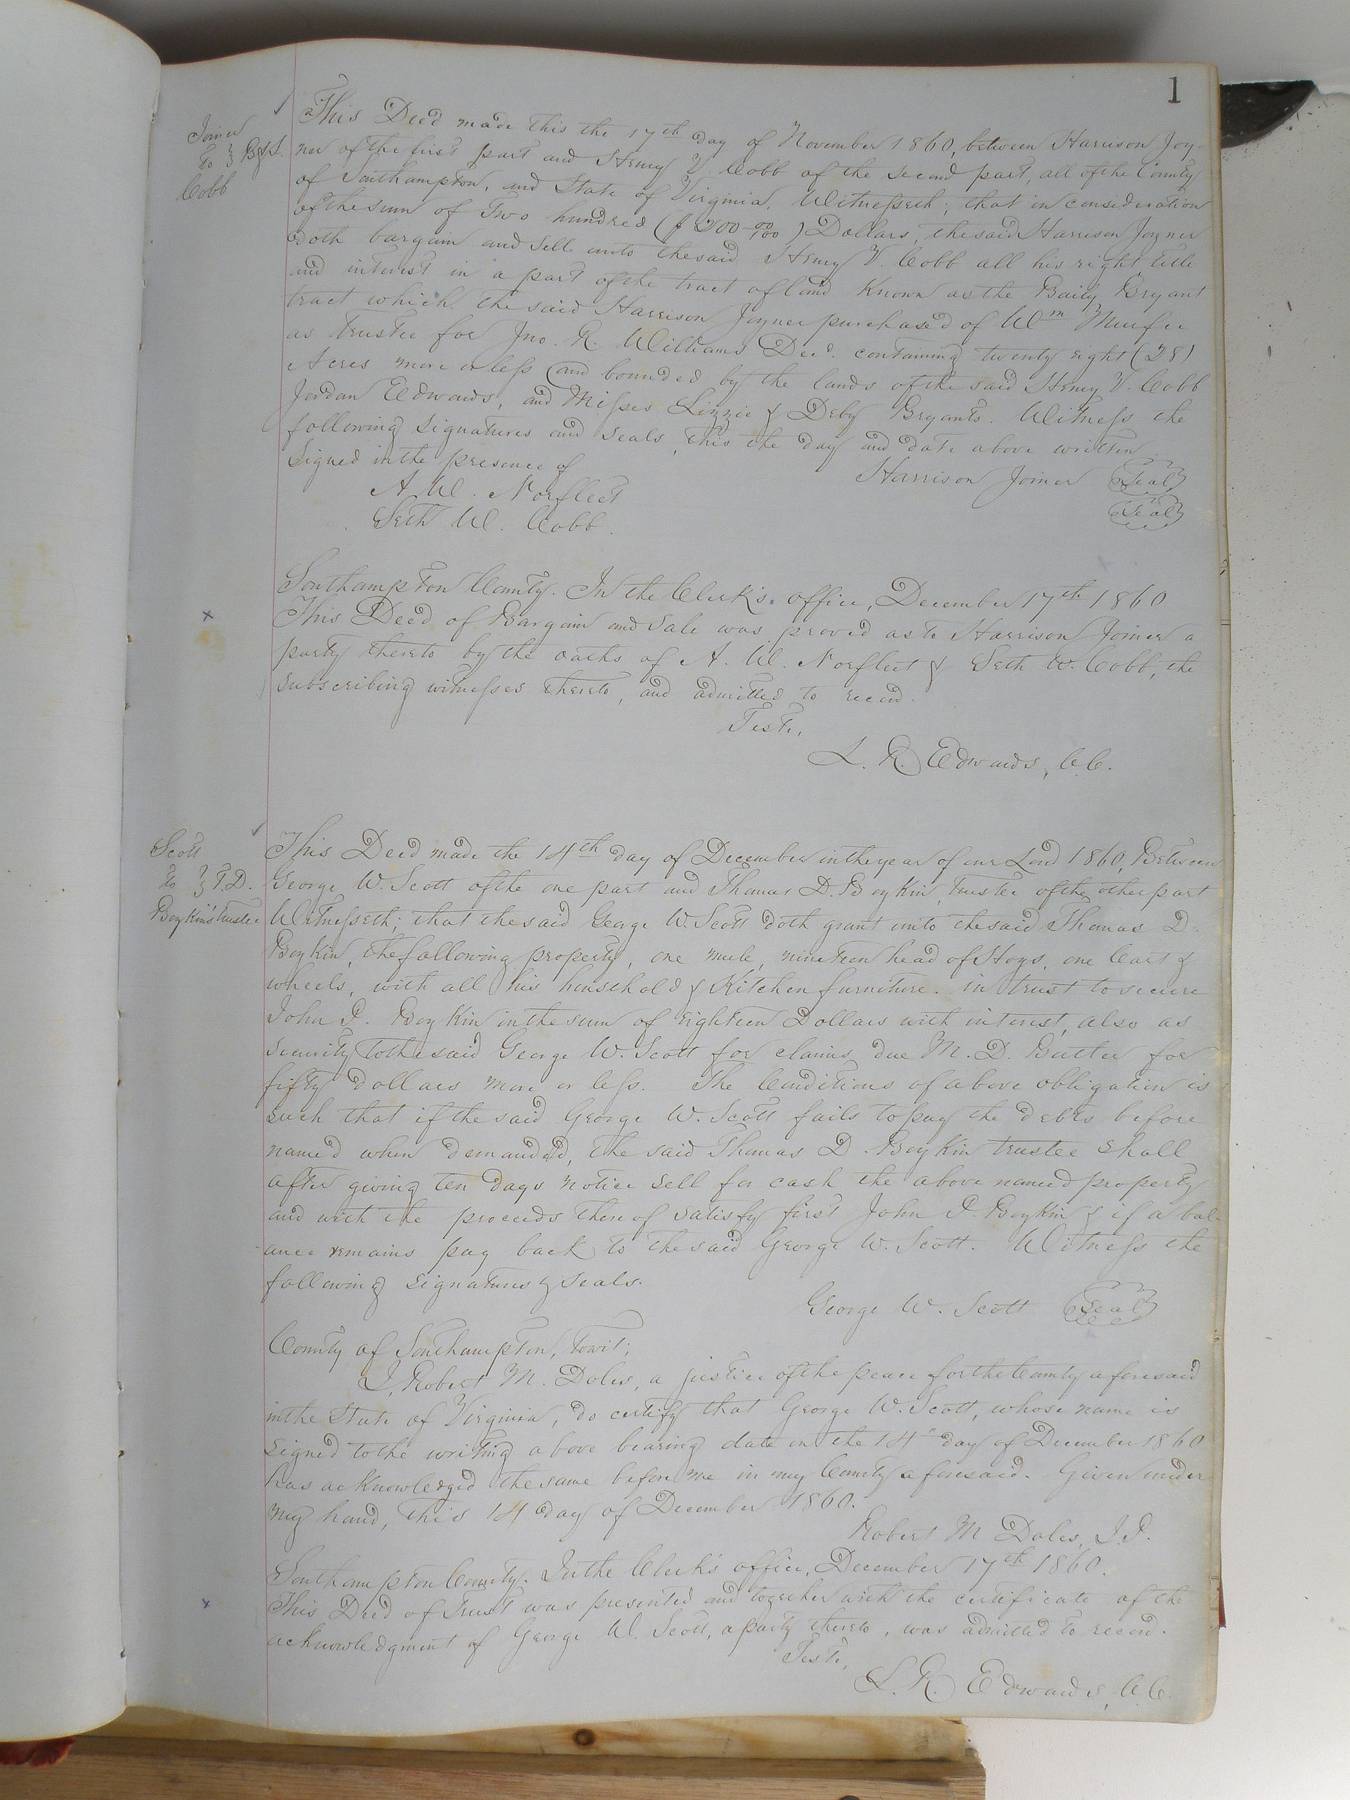 1
Joiner
to } B & S.
Cobb
This Deed made this the 17th day of November 1860, between Harrison Joy-
ner of the first part and Henry V. Cobb of the second part, all of the County
of Southampton, and State of Virginia. Witnesseth; that in consideration
of the sum of Two hundred ($200 00/100) Dollars, the said Harrison Joyner
doth bargain and sell unto the said Henry V. Cobb all his right title
and interest in a part of the tract of land Known as the Baily Bryant
tract which the said Harrison Joyner purchased of Wm Murfee
as trustee for Jno. R. Williams Decd. containing twenty eight (28)
Acres more or less and bounded by the lands of the said Henry V. Cobb
Jordan Edwards, and Misses Lizzie & Deby Bryants. Witness the
following signatures and seals, this the day and date above written
Signed in the presence of
Harrison Joiner (Seal)
A. W. Norfleet
(Seal)
Seth W. Cobb.
Southampton County. In the Clerk's office, December 17th 1860
This Deed of Bargain and Sale was proved as to Harrison Joiner a
party thereto by the oaths of A. W. Norfleet & Seth W. Cobb, the
subscribing witnesses thereto, and admitted to record.
Teste,
L. R. Edwards, C.C.
Scott
to } T.D.
Boykin's Trustee
This Deed made the 14th day of December in the year of our Lord 1860, Between
George W. Scott of the one part and Thomas D. Boykin, trustee of the other part
Witnesseth; that the said George W. Scott doth grant unto the said Thomas D.
Boykin, the following property, one mule, nineteen head of Hogs, one Cart &
wheels, with all his household & Kitchen furniture. in trust to secure
John P. Boykin in the sum of eighteen Dollars with interest, also as
security to the said George W. Scott for claims due M. D. Butler for
fifty dollars more or less. The Conditions of above obligation is
such that if the said George W. Scott fails to pay the debts before
named when demanded, the said Thomas D. Boykin trustee shall
after giving ten days notice sell for cash the above named property
and with the proceeds thereof satisfy first John P. Boykin & if a bal-
ance remains pay back to the said George W. Scott. Witness the
following signatures & seals.
George W. Scott (Seal)
County of Southampton, towit;
I, Robert M. Doles, a justice of the peace for the County aforesaid
in the State of Virginia, do certify that George W. Scott, whose name is
signed to the writing above bearing date on the 14th day of December 1860
has acKnowledged the same before me in my County aforesaid. Given under
my hand, this 14 day of December 1860.
Robert M Doles, J.P.
Southampton County. In the Clerk's office, December 17th 1860.
This Deed of Trust was presented and together with the certificate of the
acknowledgment of George W. Scott, a party thereto, was admitted to record.
Teste,
L. R. Edwards, C.C.